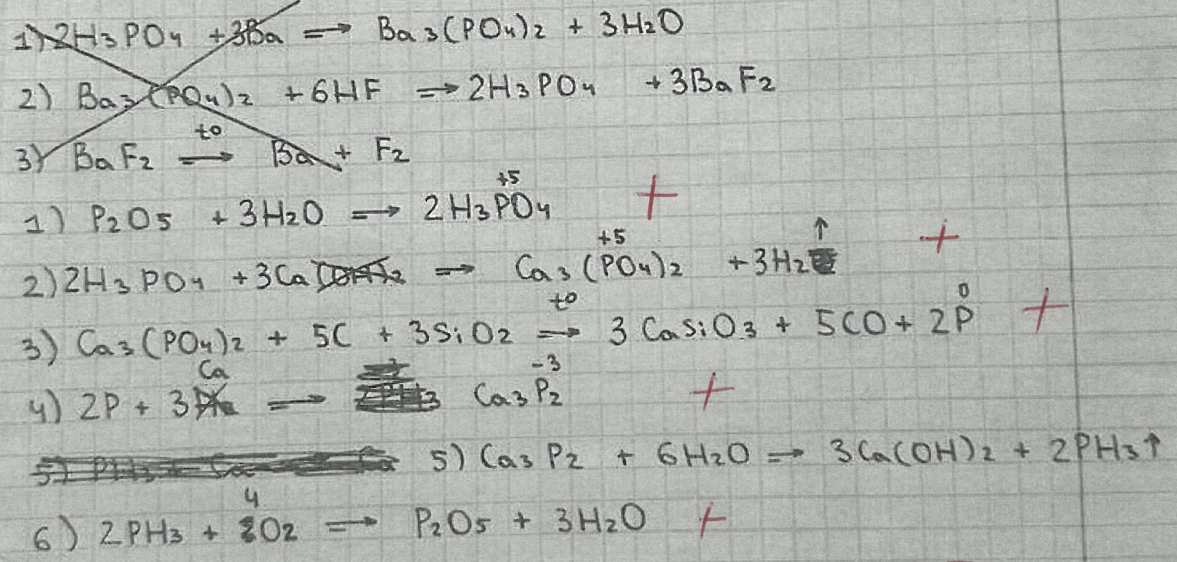 1) 2H3PO4 + 3Ba ⟹ Ba3(PO4)2 + 3H2O
2) Ba3(PO4)2 + 6HF ⟹ 2H3PO4 + 3BaF2
3) BaF2 t° ⟶ Ba + F2
1) P2O5 + 3H2O ⟶ 2H3P+5O4 +
2) 2H3PO4 + 3Ca ⟶ Ca3(P+5O4)2 + 3H2↑ +
3) Ca3(PO4)2 + 5C + 3SiO2 t° ⟶ 3CaSiO3 + 5CO + 2P0 +
4) 2P + 3Ca ⟶ Ca3P-32 +
5) Ca3P2 + 6H2O ⟶ 3Ca(OH)2 + 2PH3↑
6) 2PH3 + 4O2 ⟶ P2O5 + 3H2O +